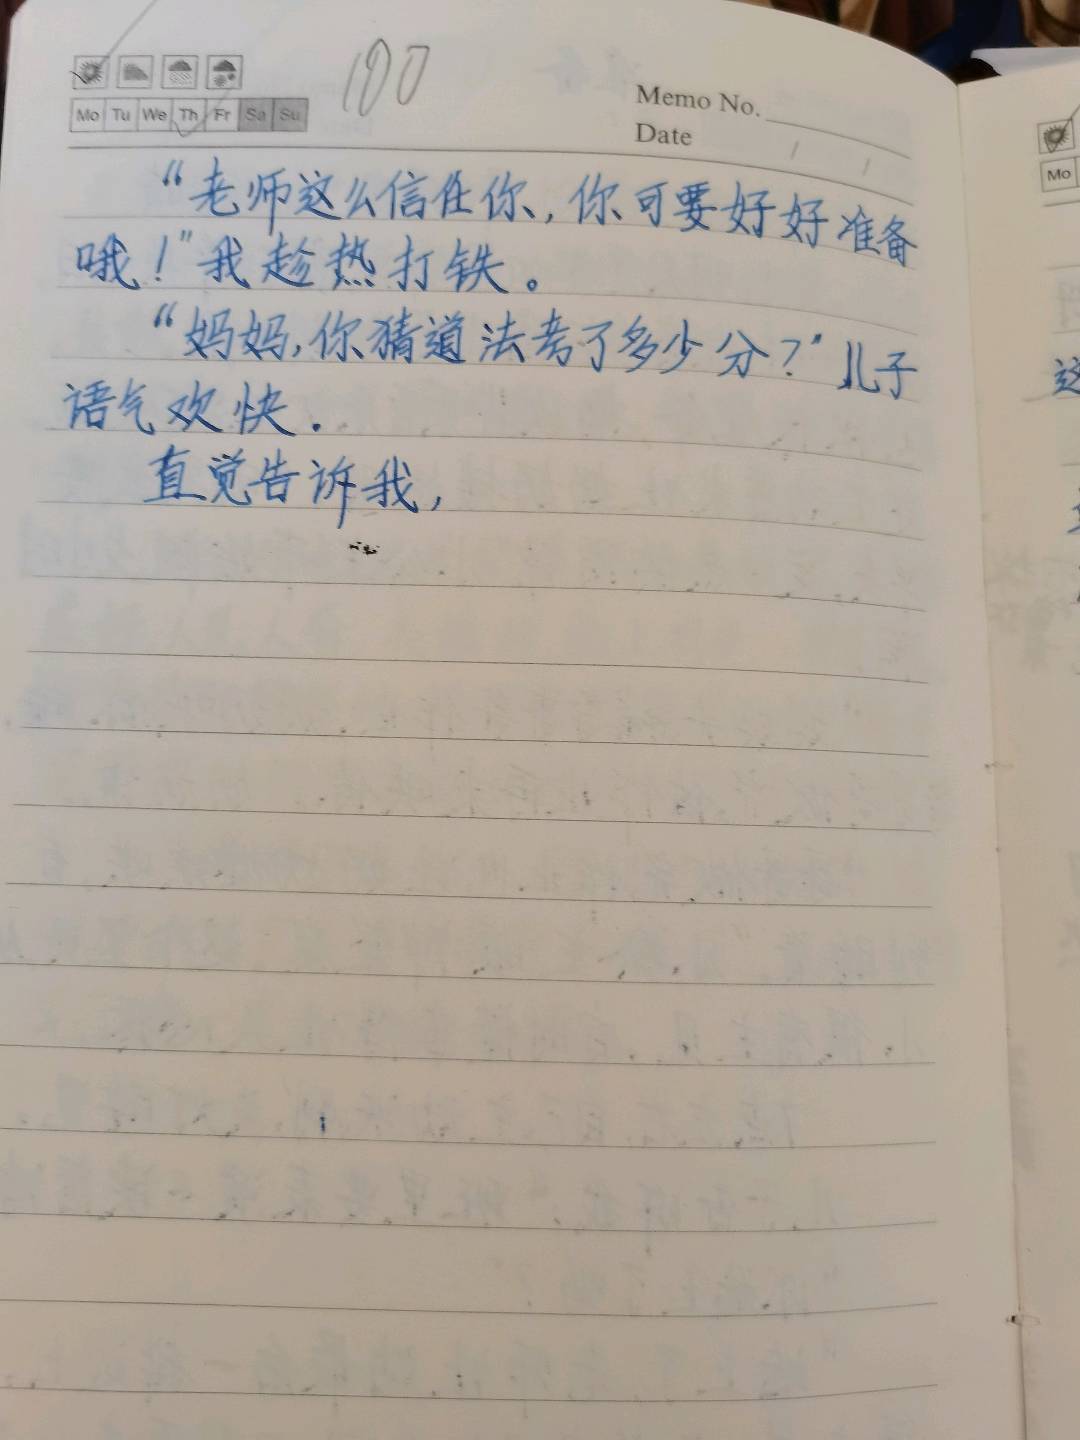 100
Mo Tu We Th Fr Sa Su
Memo No.
Date / /
“老师这么信任你,你可要好好准备
哦!”我趁热打铁。
“妈妈,你猜道法考了多少分?”儿子
语气欢快.
直觉告诉我,
Mo
这